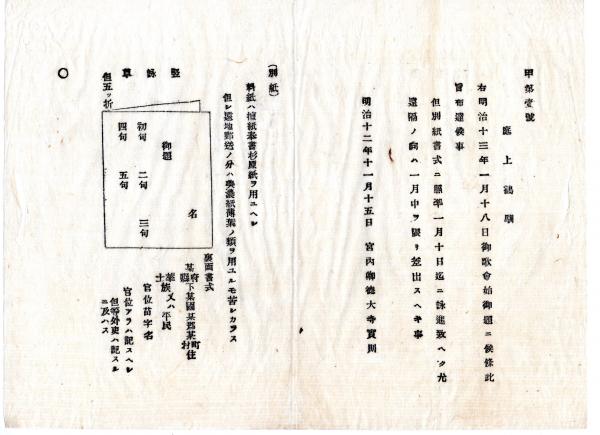 甲第壹號
庭上鶴馴
右明治十三年一月十八日御歌會始御題ニ候條此
旨布達候事
但別紙書式ニ照準一月十日迄ニ詠進致ヘク尤
遠隔ノ向ハ一月中ヲ限リ差出スヘキ事
明治十二年十一月十五日 宮内卿德大寺實則
(別紙)
料紙ハ檀紙奉書杉原紙ヲ用ユヘシ
但シ遠地郵送ノ分ハ美濃紙薄葉ノ類ヲ用ユルモ苦シカラス
竪詠草
但五ッ折
御題
名
初句 二句 三句
四句 五句
裏面書式
某府縣下某國某郡某町村住
華士族又ハ平民
官位苗字名
官位アラハ記スヘシ
但等外吏ハ記スル
ニ及ハス
○